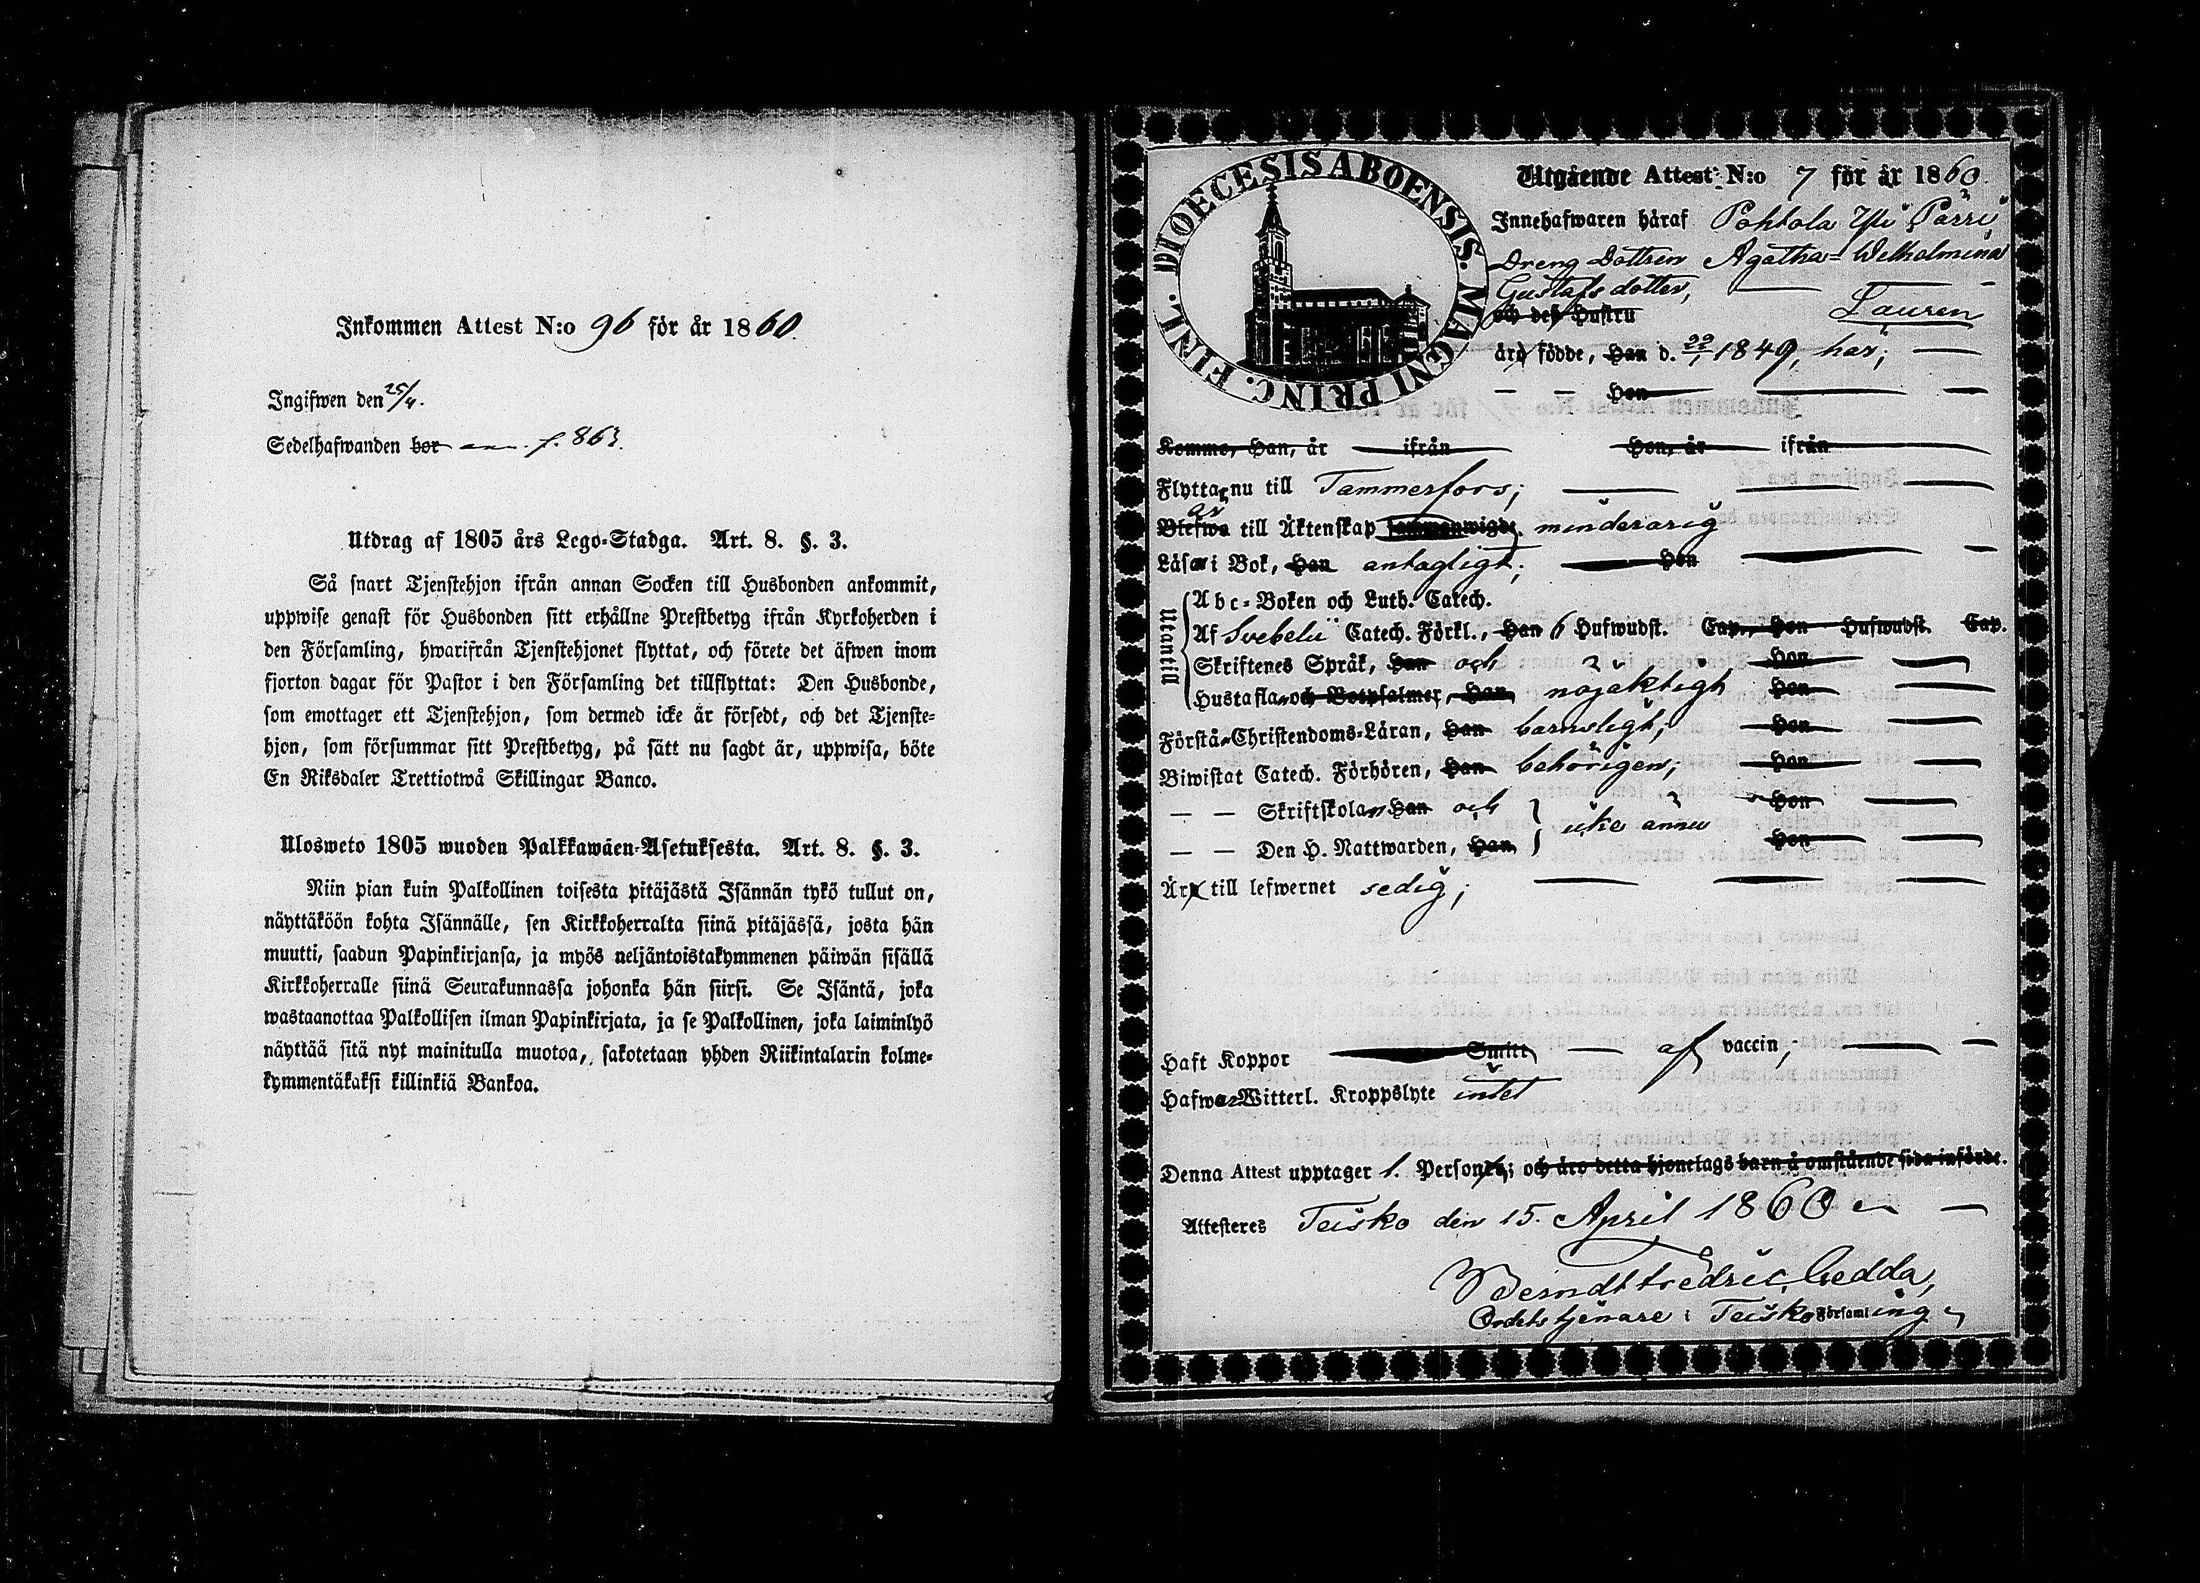 Inkommen Attest N:o 96 för år 1860.
Ingifwen den 25/4.
Sedelhafwanden bor f. 863.
Utdrag af 1805 års Lego-Stadga. Art. 8. §. 3.
Så snart Tjenstehjon ifrån annan Socken till Husbonden ankommit,
uppwise genast för Husbonden sitt erhållne Prestbetyg ifrån Kyrkoherden i
den Församling, hwarifrån Tjenstehjonet flyttat, och förete det äfwen inom
fjorton dagar för Pastor i den Församling det tillflyttat: Den Husbonde,
som emottager ett Tjenstehjon, som dermed icke är försedt, och det Tjenste-
hjon, som försummar sitt Prestbetyg, på sätt nu sagdt är, uppwisa, böte
En Riksdaler Trettiotwå Skillingar Banco.
Ulosweto 1805 wuoden Palkkawäen-Asetuksesta. Art. 8. §. 3.
Niin pian kuin Palkollinen toisesta pitäjästä Isännän tykö tullut on,
näyttäköön kohta Isännälle, sen Kirkkoherralta siinä pitäjässä, josta hän
muutti, saadun Papinkirjansa, ja myös neljäntoistakymmenen päiwän sisällä
Kirkkoherralle siinä Seurakunnassa johonka hän siirsi. Se Isäntä, joka
wastaanottaa Palkollisen ilman Papinkirjata, ja se Palkollinen, joka laiminlyö
näyttää sitä nyt mainitulla muotoa, sakotetaan yhden Riikintalarin kolme-
kymmentäkaksi killinkiä Bankoa.
DIOECESIS ABOENSIS. MAGNI PRINC. FINL.
Utgående Attest N:o 7 för år 1860.
Innehafwaren häraf Pohtola Yli Pärri
Dreng Dottren Agatha Wilhelmina
Gustafs dotter,
och deß Hustru Lauren
äro födde, Han d. 22/1 1849, här;
Hon
Komne, Han, år ifrån Hon, år ifrån
Flyttar nu till Tammerfors;
Blefwo är till Äktenskap sammanwigde minderårig
Läser i Bok, Han antagligt; Hon
Utantill
Abc-Boken och Luth. Catech.
Af Svebelii Catech. Förkl., Han 6 Hufwudst. Cap., Hon Hufwudst. Cap.
Skriftenes Språk, Han och Hon
Hustafla och Botpsalmer, Han nöjaktigt Hon
Förstår Christendoms-Läran, Han barnsligt; Hon
Biwistat Catech. Förhören, Han behörigen; Hon
— — Skriftskolan Han och Hon
icke ännu
— — Den H. Nattwarden, Han Hon
Är till lefwernet sedig;
Haft Koppor Smitt af vaccin;
Hafwer Witterl. Kroppslyte intet
Denna Attest upptager 1. Person; och äro detta hjonelags barn å omstående sida införde.
Attesteres Teisko den 15. April 1860
Berndt Fredric Gedda,
Ordets tjenare i Teisko Församling